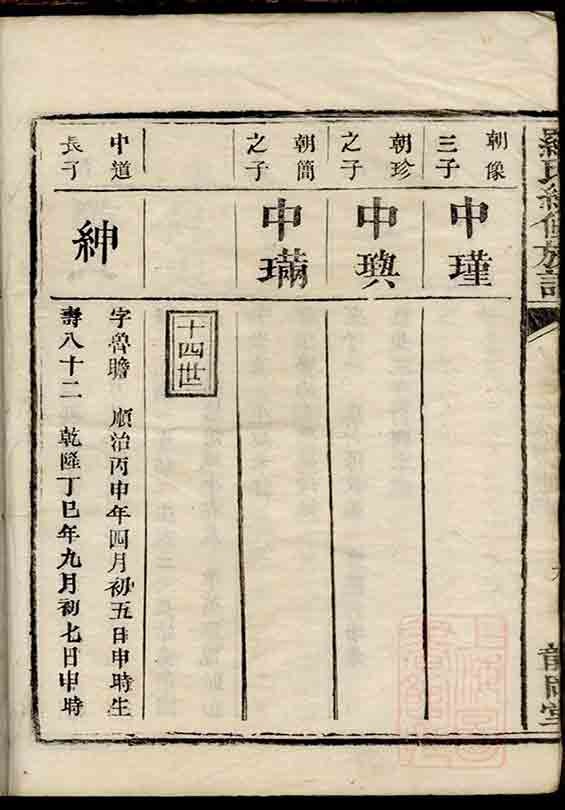 羅氏續修族譜
朝像三子
中瑾
朝珍之子
中璵
朝簡之子
中璊
十四世
中道長子
紳
字魯瞻 順治丙申年四月初五日申時生
壽八十二 乾隆丁巳年九月初七日申時